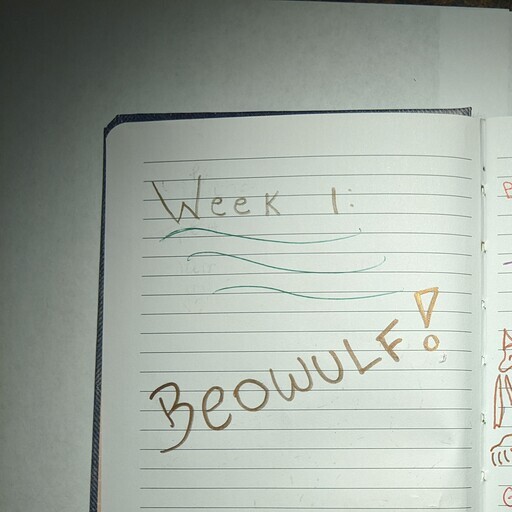 Week 1:
BeOWULF!